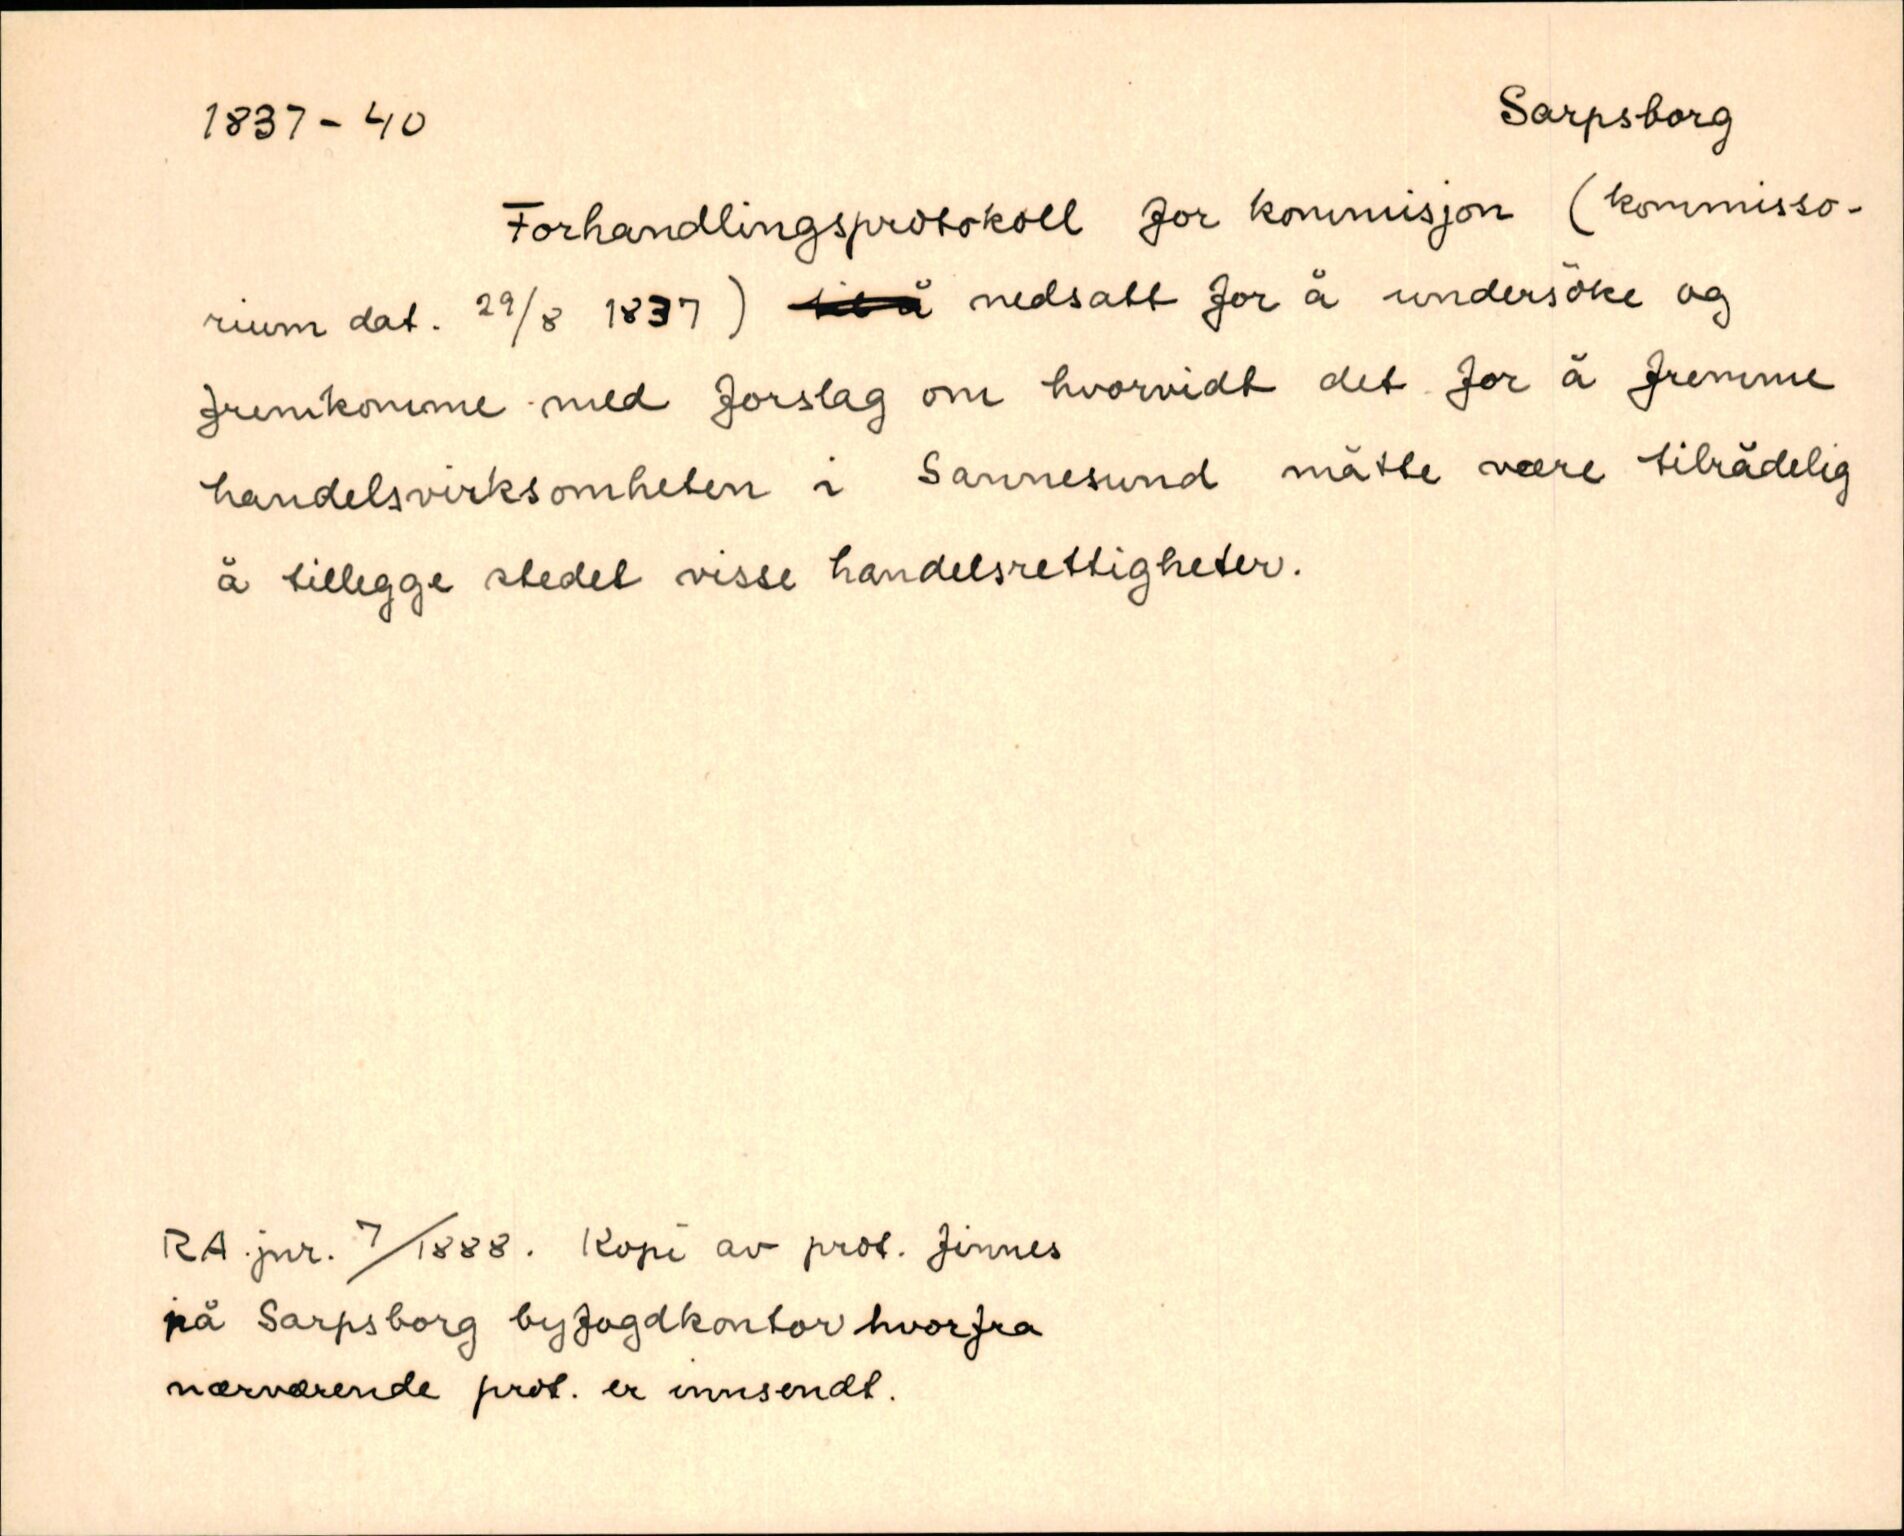 1837-40 Sarpsborg
Forhandlingsprotokoll for kommisjon (kommisso-
rium dat. 29/8 1837) til å nedsatt for å undersöke og
fremkomme med forslag om hvorvidt det for å fremme
handelsvirksomheten i Sannesund måtte være tilrådelig
å tillegge stedet visse handelsrettigheter.
RA jnr. 7/1888. Kopi av prot. finnes
på Sarpsborg byfogdkontor hvorfra
nærværende prot. er innsendt.